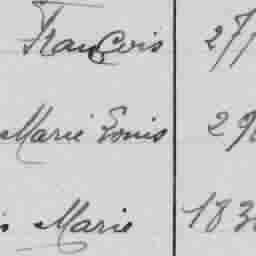 François 27
Marie Louis 29
Marie 183